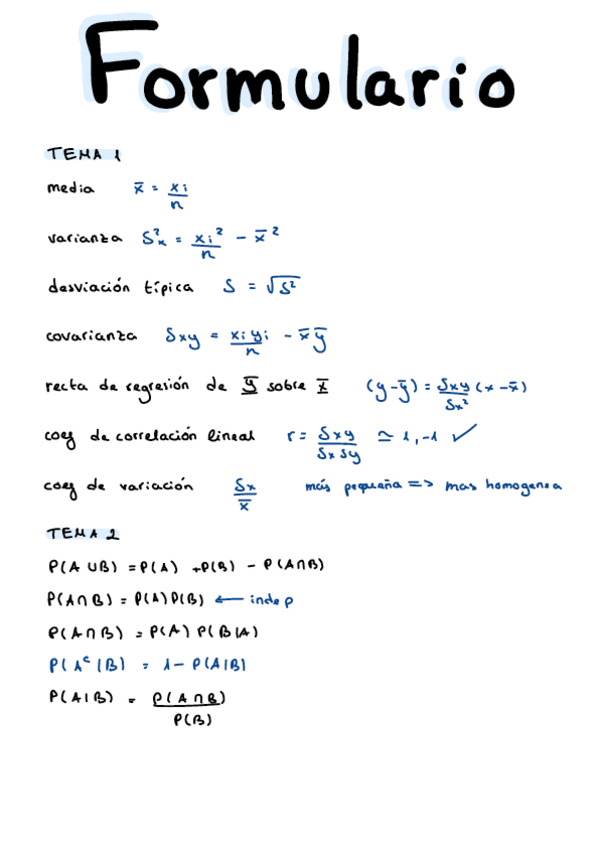 Formulario
TEMA 1
media x̄ = xi/n
varianza S²x = xi²/n - x̄²
desviación típica S = √S²
covarianza Sxy = xiyi/n - x̄ȳ
recta de regresión de y sobre x (y-ȳ) = Sxy/Sx² (x-x̄)
coef de correlación lineal r = Sxy/SxSy ≃ 1,-1 ✓
coef de variación Sx/x̄ más pequeña => mas homogenea
TEMA 2
P(A∪B) = P(A) + P(B) - P(A∩B)
P(A∩B) = P(A)P(B) ← indep
P(A∩B) = P(A) P(B|A)
P(Aᶜ|B) = 1 - P(A|B)
P(A|B) = P(A∩B)/P(B)